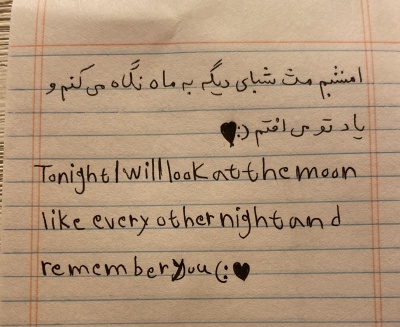 امشبم مث شبای دیگه به ماه نگاه می‌کنم و
یاد تو می افتم :)🖤
Tonight I will look at the moon
like every other night and
remember you (:🖤